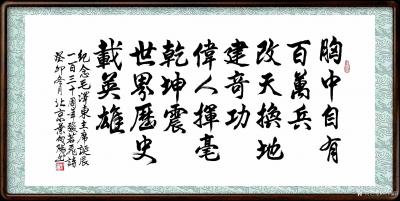 胸中自有
百萬兵
改天換地
建奇功
偉人揮毫
乾坤震
世界歷史
載英雄
紀念毛澤東主席誕辰
一百三十周年 詩
癸卯冬月 北京葉向陽